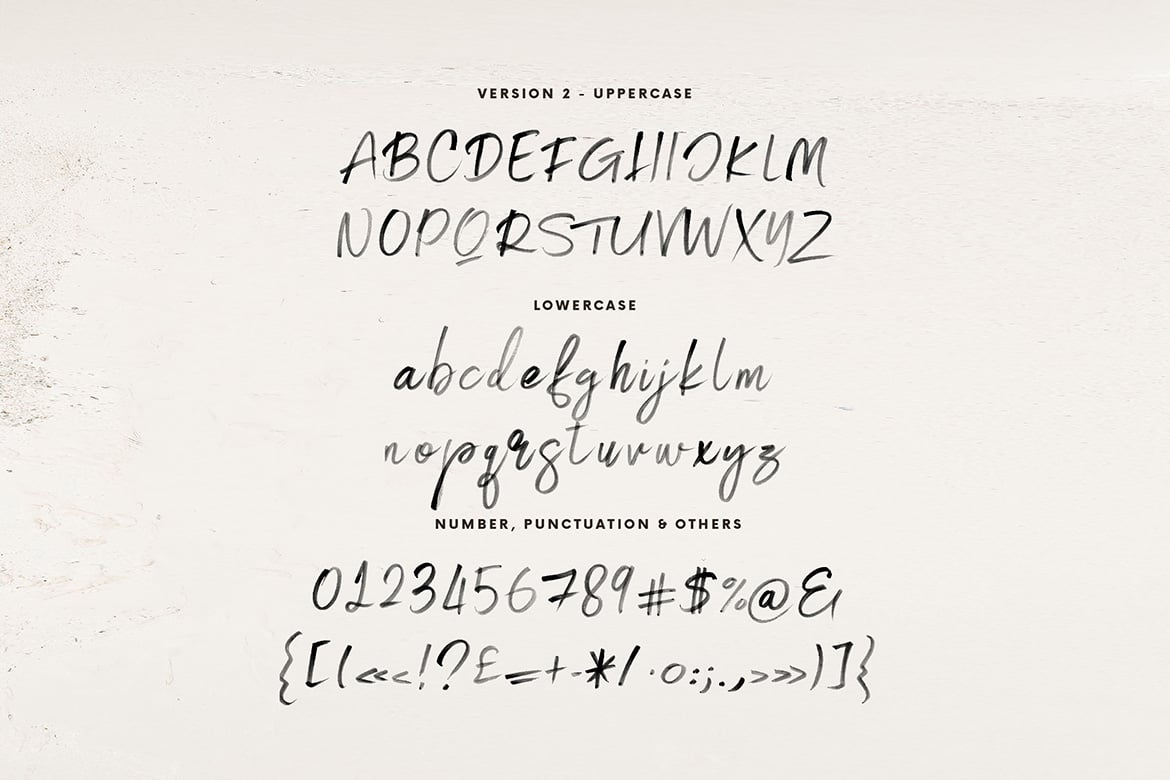 VERSION 2 - UPPERCASE
ABCDEFGHIJKLM
NOPQRSTUVWXYZ
LOWERCASE
abcdefghijklm
nopqrstuvwxyz
NUMBER, PUNCTUATION & OTHERS
0123456789#$%@&
{[(«<!?£=+-*/·o:;.,>»)]}